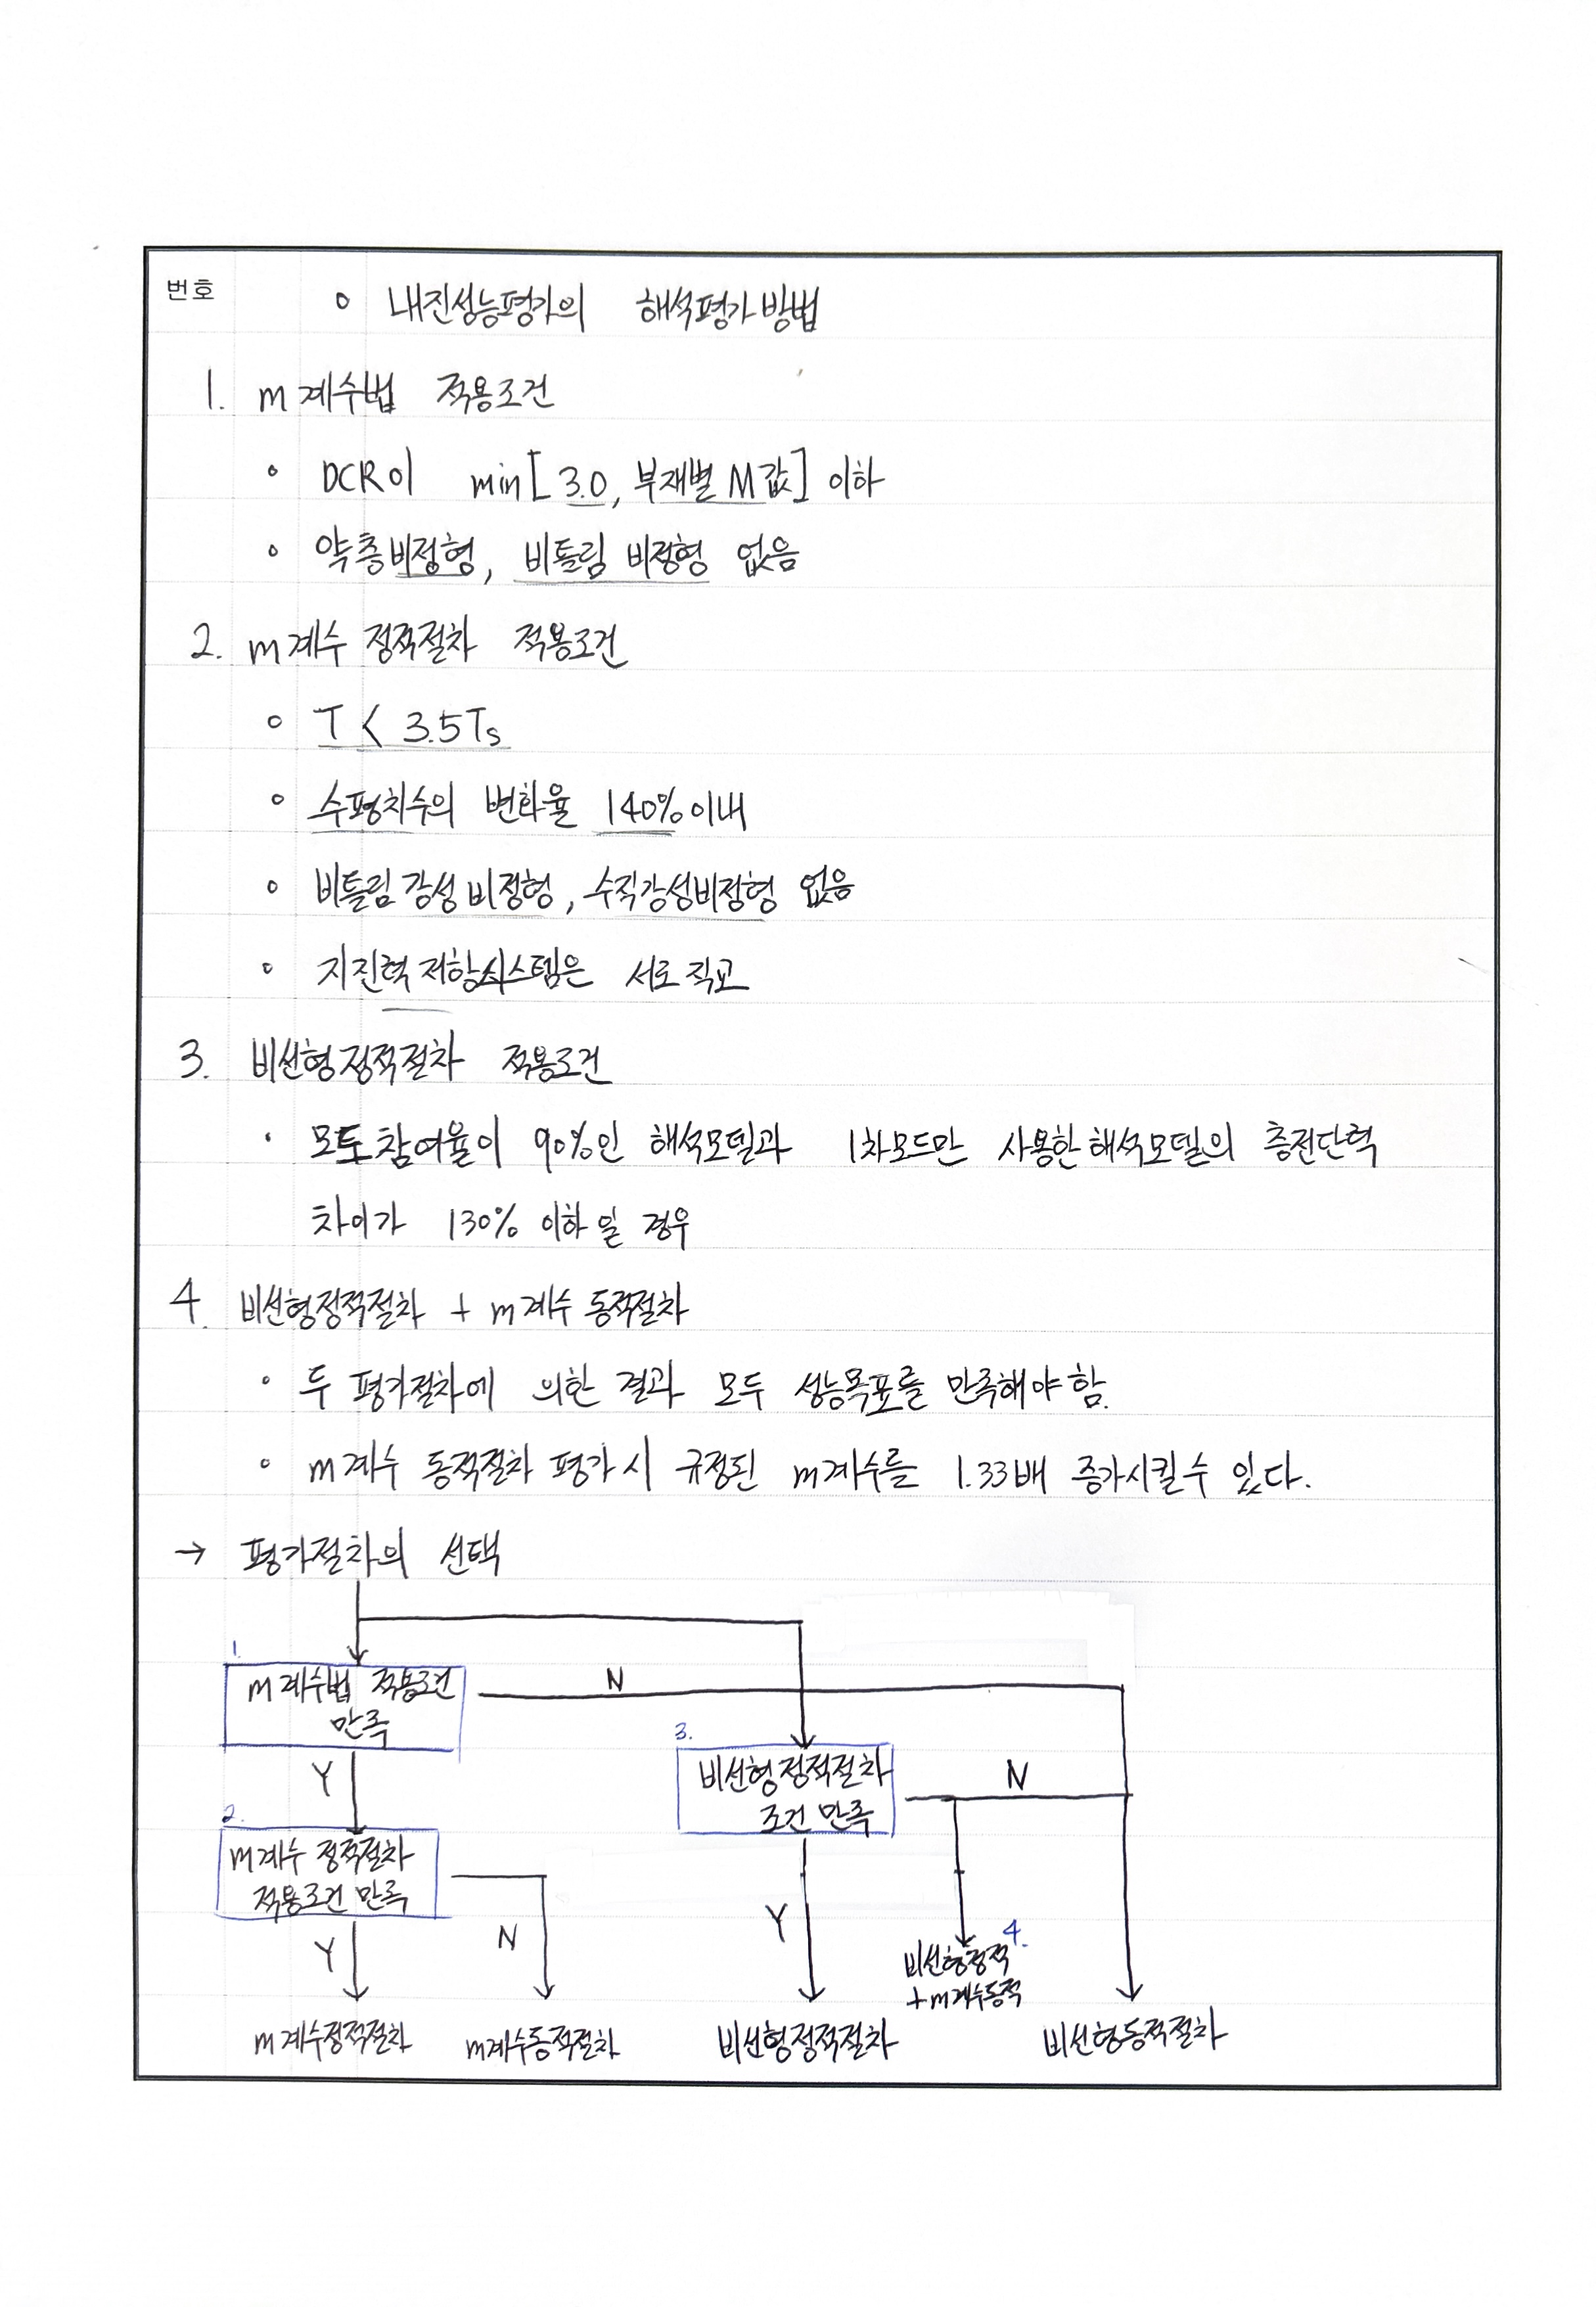 번호
○ 내진성능평가의 해석평가방법
1. m계수법 적용조건
○ DCR이 min[3.0, 부재별 M값] 이하
○ 약층비정형, 비틀림 비정형 없음
2. m계수 정적절차 적용조건
○ T < 3.5Ts
○ 수평치수의 변화율 140%이내
○ 비틀림강성비정형, 수직강성비정형 없음
○ 지진력저항시스템은 서로 직교
3. 비선형정적절차 적용조건
· 모드참여율이 90%인 해석모델과 1차모드만 사용한 해석모델의 층전단력
차이가 130% 이하일 경우
4. 비선형정적절차 + m계수 동적절차
○ 두 평가절차에 의한 결과 모두 성능목표를 만족해야함.
○ m계수 동적절차 평가시 규정된 m계수를 1.33배 증가시킬수 있다.
→ 평가절차의 선택
1.
m계수법 적용조건
만족
N
3.
비선형정적절차
조건 만족
N
Y
2.
m계수 정적절차
적용조건 만족
Y
N
Y
4.
비선형정적
+m계수동적
m계수정적절차
m계수동적절차
비선형정적절차
비선형동적절차